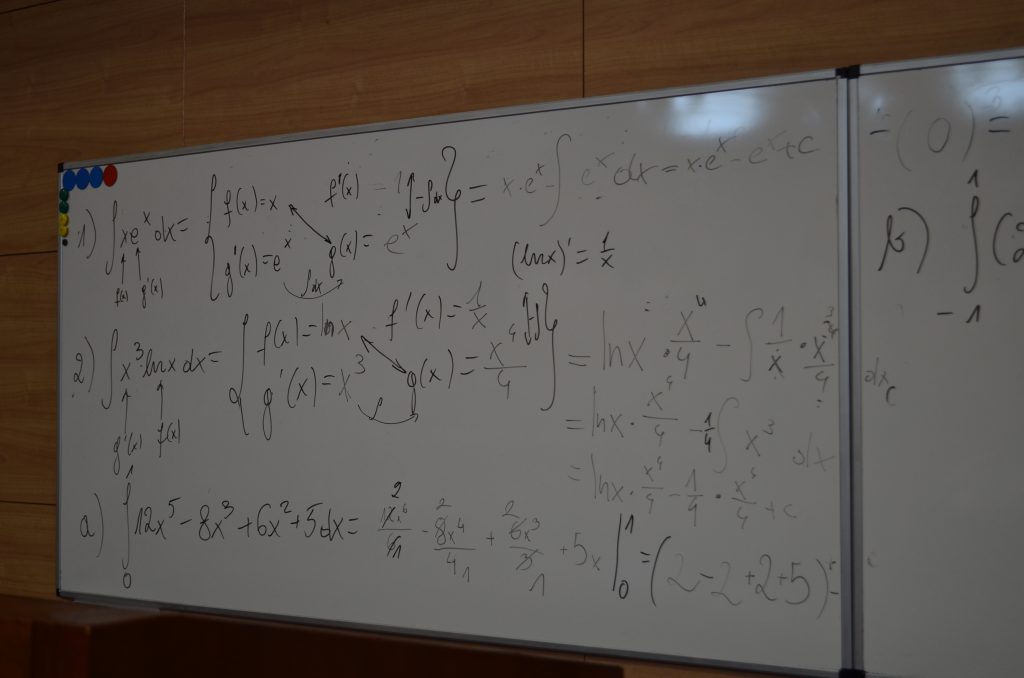 1) ∫xe^x dx = { f(x)=x f'(x) = 1 ↕ -∫dx } = x·e^x - ∫ e^x dx = x·e^x - e^x + c
g'(x)=e^x g(x)= e^x
∫dx
f(x) g'(x)
(lnx)' = 1/x
2) ∫x^3 lnx dx = { f(x)=lnx f'(x) = 1/x } = lnx · x^4/4 - ∫ 1/x · x^4/4 dx
g'(x)=x^3 g(x) = x^4/4
∫
g'(x) f(x)
= lnx · x^4/4 - 1/4 ∫ x^3 dx
= lnx · x^4/4 - 1/4 · x^4/4 + c
a) ∫_0^1 12x^5 - 8x^3 + 6x^2 + 5 dx = 12x^6/6 - 8x^4/4 + 6x^3/3 + 5x |_0^1 = (2-2+2+5) -
- (0) =
b) ∫_{-1}^1 (